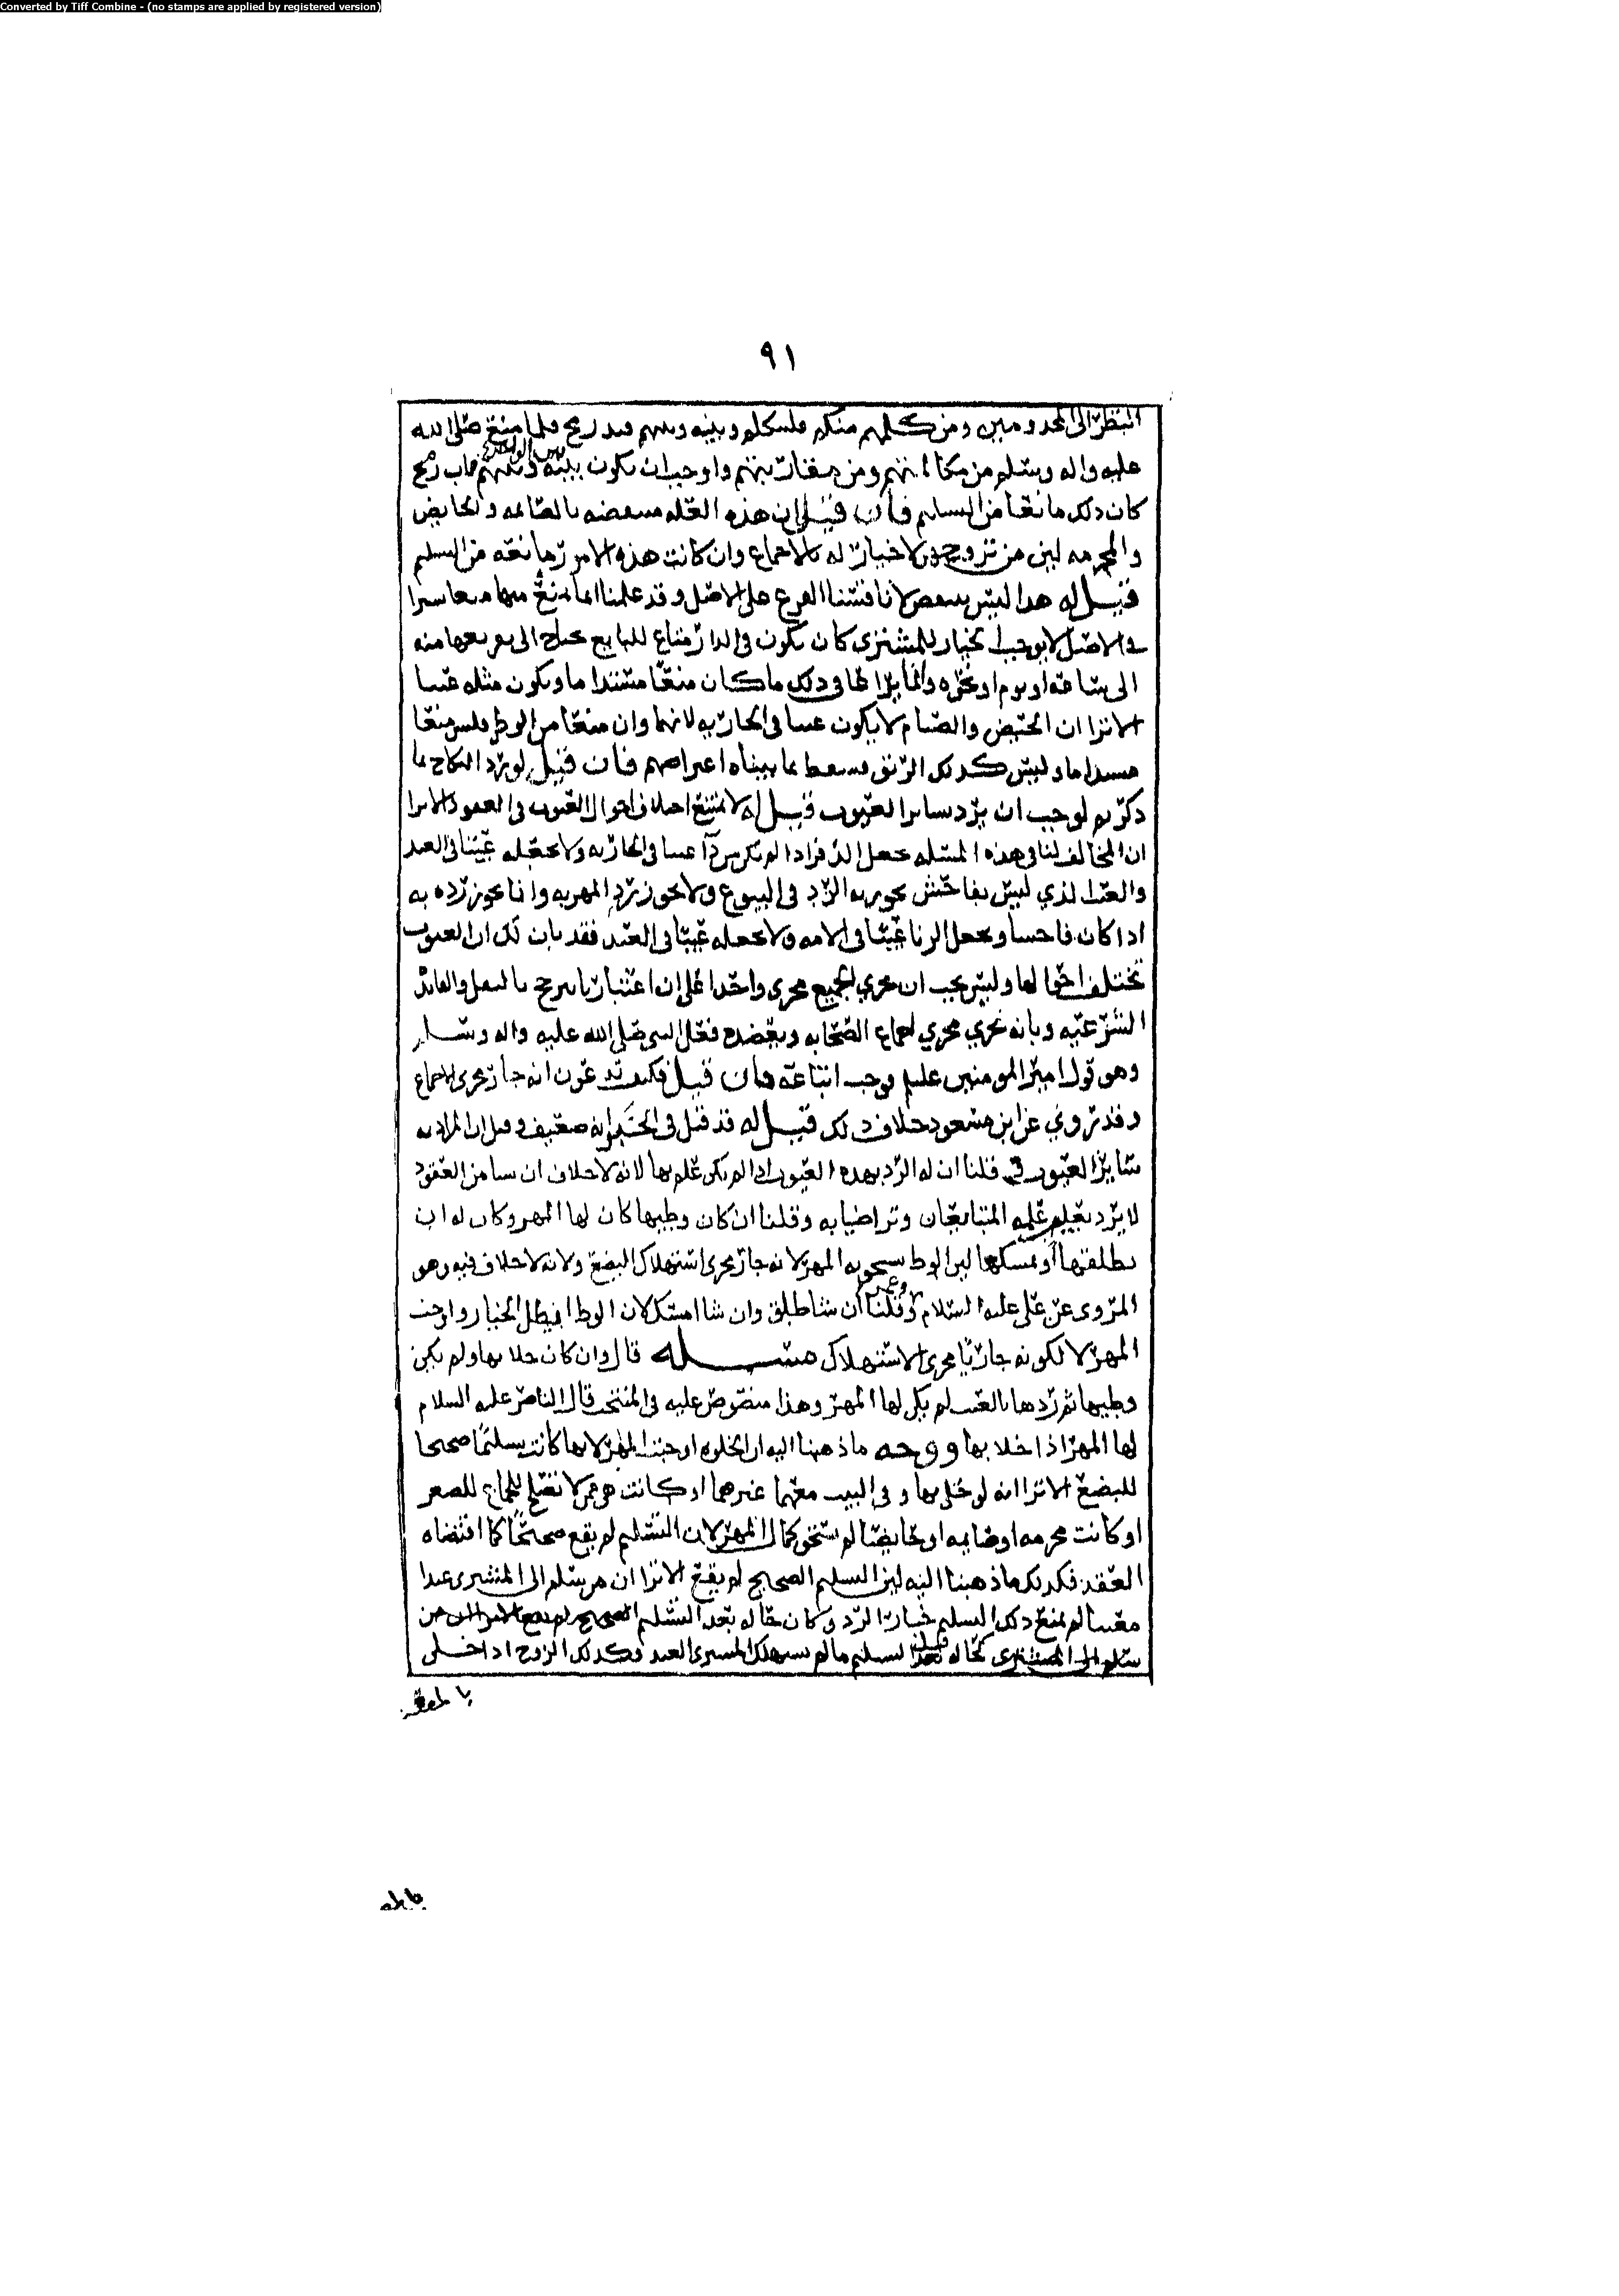 Converted by Tiff Combine - (no stamps are applied by registered version)
٩١
النظر الى المجذومين ومن كلمهم منكم فليكلم وبينه وبينهم قيد رمح فلما منع صلى الله
عليه واله وسلم من مكالمتهم ومن مقاربتهم واوجب ان يكون بينه وبينهم قاب رمح
كان ذلك مانعا من التسليم فان قيل ان هذه العله منتقضه بالصائمه والحايض
والمحرمه لان من تزوج بهن لا خيار له بالاجماع وان كانت هذه الامور مانعه من التسليم
قيل له هذا ليس بنقض لانا قسنا الفرع على الاصل وقد علمنا ان ما يمنع منهما منعا يسيرا
في الاصل لا يوجب الخيار للمشتري كان يكون في الدار متاع للبايع يحتاج الى تفريغها منه
الى ساعه او يوم او نحوه وانما يراعا في ذلك ما كان منعا مستداما ويكون مثله عيبا
الا ترا ان الحيض والصيام لا يكون عيبا في الجاريه لانهما وان منعا من الوطء فليس منعا
مستداما وليس كذلك الرتق فسقط بما بيناه اعتراضهم فان قيل لو رد النكاح بما
ذكرتم لوجب ان يرد بساير العيوب قيل له لا يمتنع اختلاف احوال العيوب في العقود الا ترا
ان المخالف لنا في هذه المسئله جعل الذفر اذا لم يكن من دآ عيبا في الجاريه ولا يجعله عيبا في العبد
والعيب الذي ليس بفاحش يجوز به الرد في البيوع ولا يجوز رد المهر به وانما يجوز رده به
اذا كان فاحشا ويجعل الزنا عيبا في الامه ولا يجعله عيبا في العبد فقد بان لك ان العيوب
تختلف احوالها وليس يجب ان يجري الجميع مجرى واحدا على ان اعتبارنا يترجح بالنقل والفائده
الشرعيه وبانه يجري مجري اجماع الصحابه ويعضده فعل النبي صلى الله عليه واله وسلم
وهو قول امير المومنين عليلم وجب اتباعه فان قيل فكيف تدعون انه جار مجرى الاجماع
وقد روي عن ابن مسعود خلاف ذلك قيل له قد قيل في الخبر انه ضعيف وقيل ان المراد به
ساير العيوب قلنا ان له الرد بهذه العيوب اذا لم يكن علم بها لانه لا خلاف ان شيا من العقود
لا يرد بعيب علمه المتبايعان وتراضيا به وقلنا ان كان وطيها كان لها المهر وكان له ان
يطلقها او يمسكها لان الوطء يستحق به المهر لانه جار مجرى استهلاك البضع ولانه لا خلاف فيه وهو
المروى عن على عليه السلام وعمر وقلنا ان شا طلق وان شا امسك لان الوطء ابطل الخيار واوجب
المهر لا لكونه جاريا مجرى الاستهلاك مسئله قال وان كان خلا بها ولم يكن
وطيها ثم ردها بالعيب لم يكن لها المهر وهذا منصوص عليه في المنتخب قال الناصر عليه السلام
لها المهر اذا خلا بها ووجه ما ذهبنا اليه ان الخلوه اوجبت المهر لانها كانت تسليما صحيحا
للبضع الا ترا انه لو خلى بها وفي البيت معهما غيرهما او كانت هي ممن لا تصلح للجماع للصغر
او كانت محرمه او صايمه او حايضا لم تستحق كمال المهر لان التسليم لم يقع صحيحا كما اقتضاه
العقد فكذلك ما ذهبنا اليه لان التسليم الصحيح لم يقع الا ترا ان من سلم الى المشترى عبدا
معيبا لم يمنع ذلك التسليم خيار الرد وكان حاله بعد التسليم
سلم الى المشتري كحاله قبل التسليم ما لم يستهلك المشترى العبد وكذلك الزوج اذا خلى